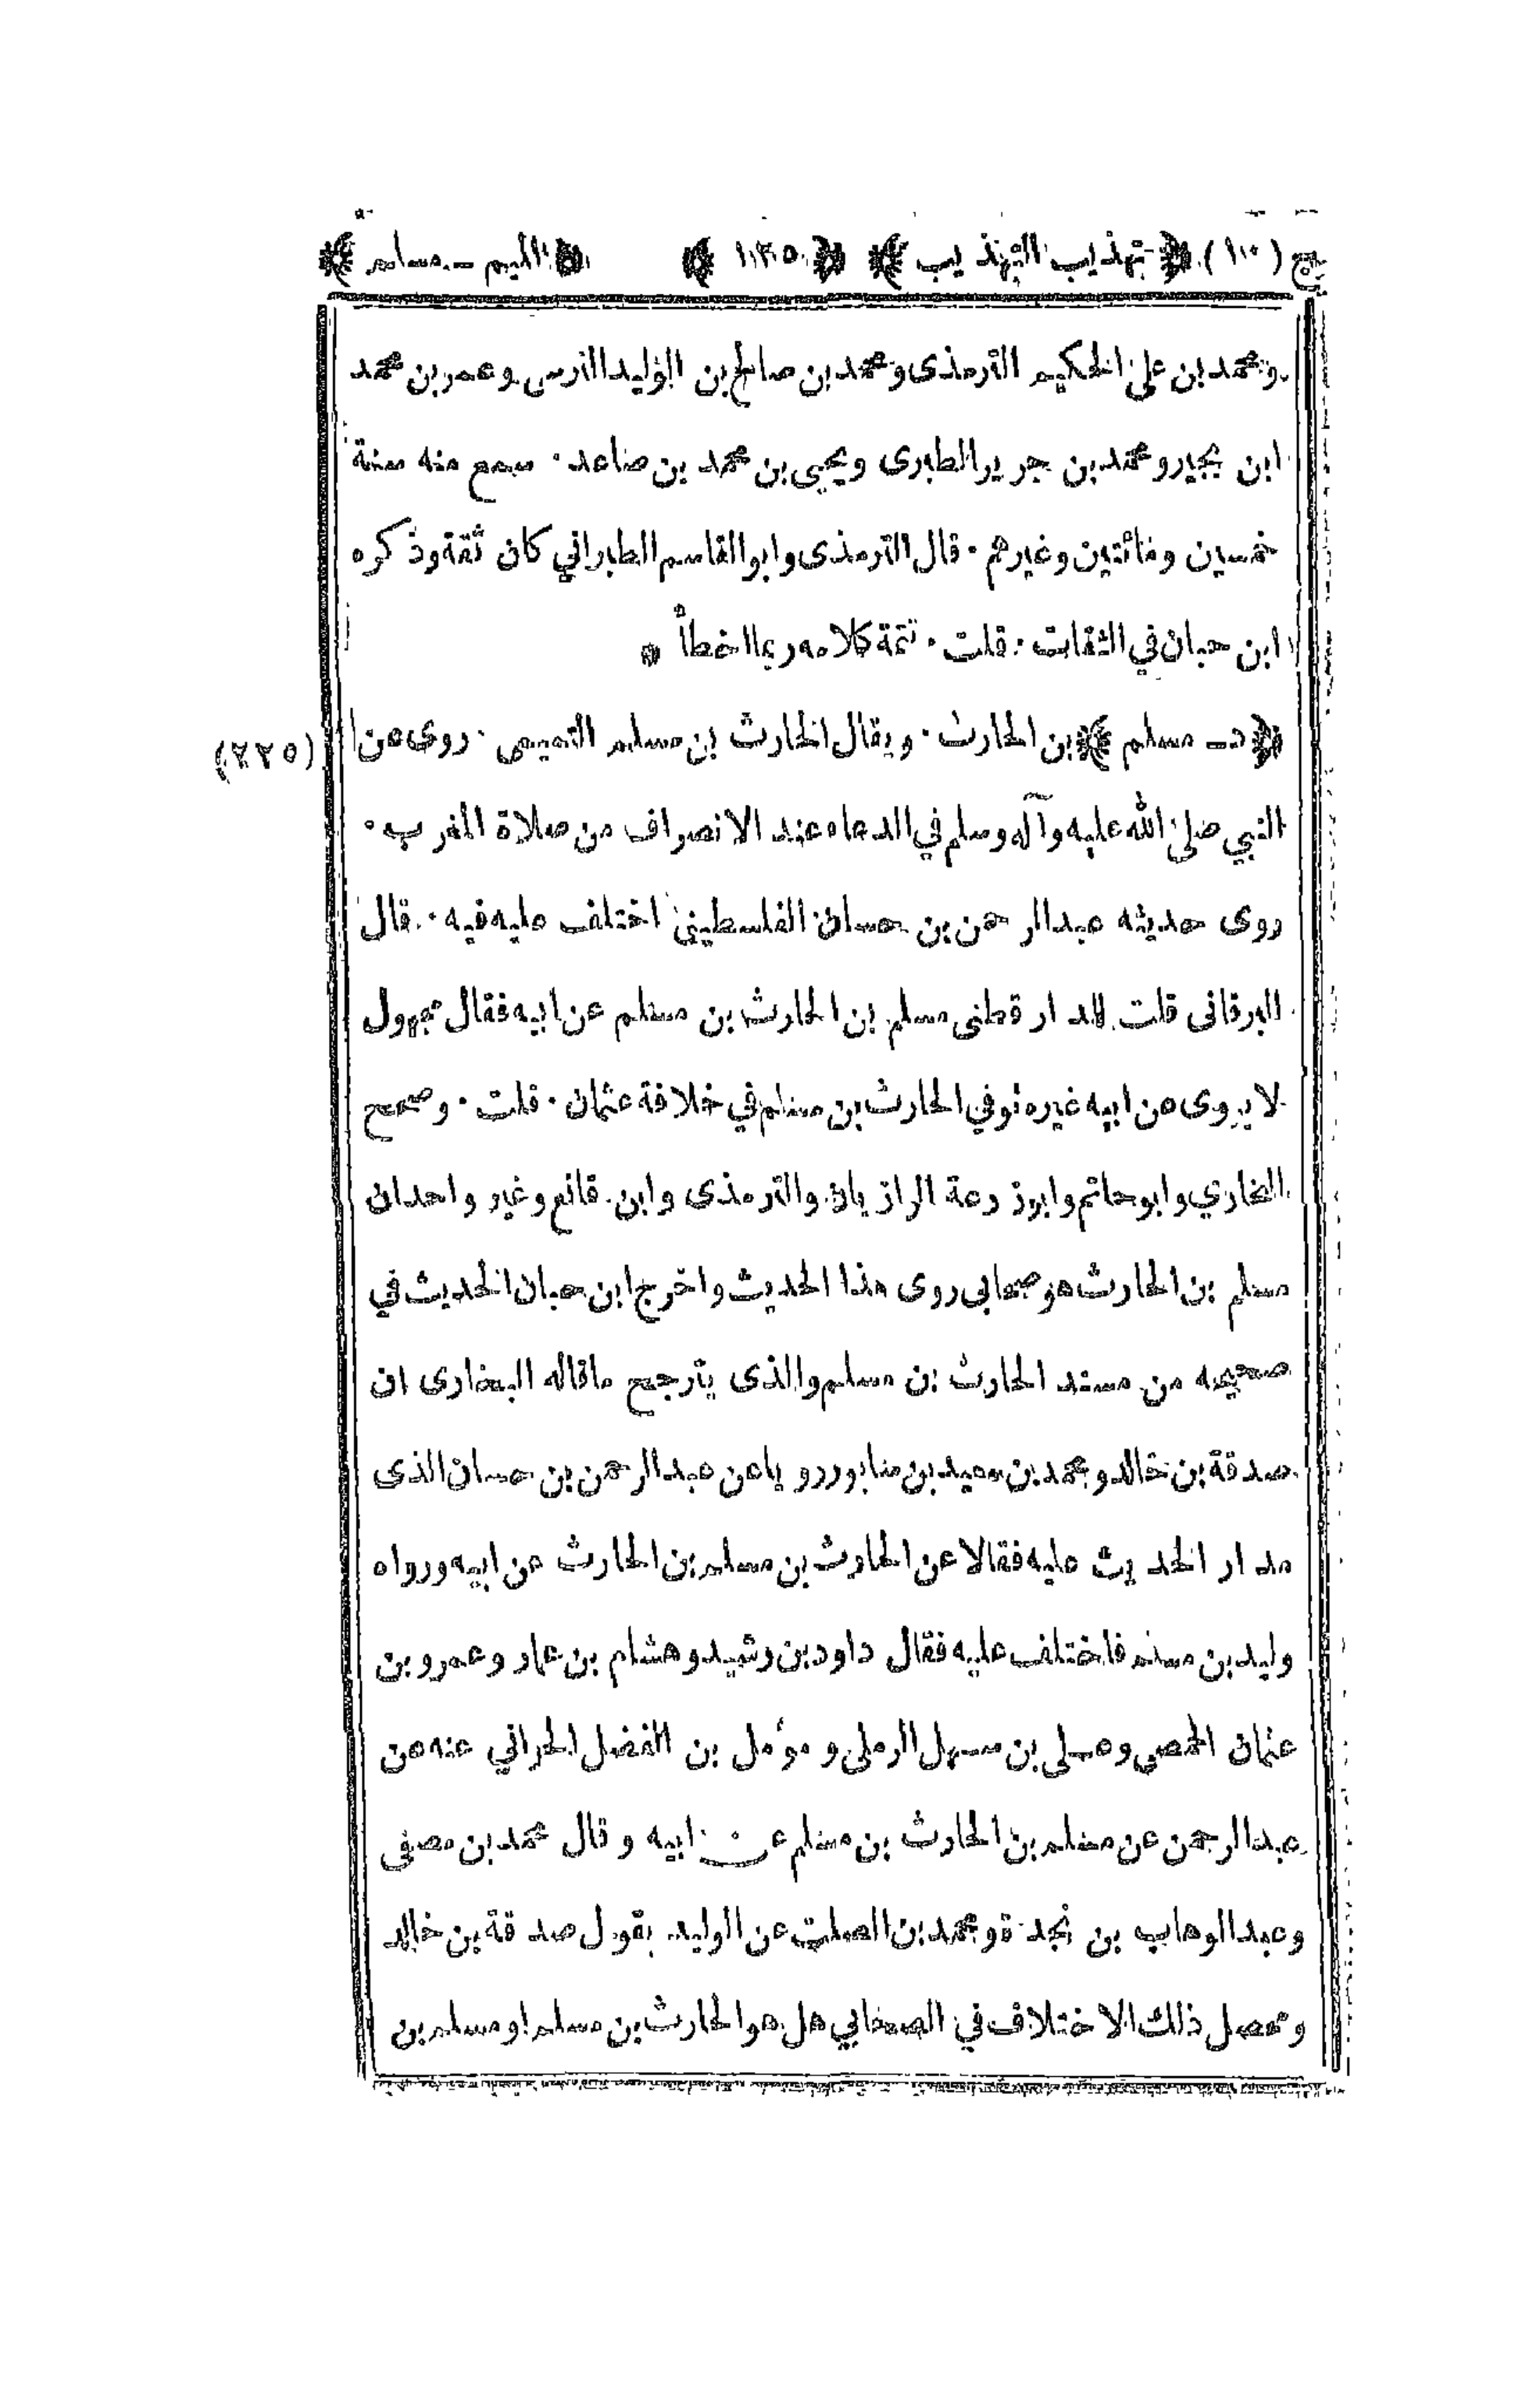 ج (١٠) ﴿ تهذيب التهذيب ﴾ ﴿ ١٢٥ ﴾ ﴿ الميم ـ مسلم ﴾
ومحمد بن على الحكيم الترمذى ومحمد بن صالح بن الوليد النرسى وعمر بن محمد
ابن بجير ومحمد بن جرير الطبرى ويحيى بن محمد بن صاعد ٠ سمع منه سنة
خمسين ومائتين وغيرهم ٠ قال الترمذى وابو القاسم الطبراني كان ثقة وذكره
ابن حبان في الثقات ٠ قلت ٠ تتمة كلامه ربما اخطأ *
﴿ د ـ مسلم ﴾ بن الحارث ٠ ويقال الحارث بن مسلم التميمى ٠ روى عن
(٢٢٥)
النبي صلى الله عليه وآله وسلم في الدعاء عند الانصراف من صلاة المغرب ٠
روى حديثه عبدالرحمن بن حسان الفلسطينى اختلف عليه فيه ٠ قال
البرقانى قلت للدار قطنى مسلم بن الحارث بن مسلم عن ابيه فقال مجهول
لا يروى عن ابيه غيره توفي الحارث بن مسلم في خلافة عثمان ٠ قلت ٠ وصحح
البخاري وابو حاتم وابو زرعة الرازيان والترمذى وابن قانع وغير واحد ان
مسلم بن الحارث هو صحابى روى هذا الحديث واخرج ابن حبان الحديث في
صحيحه من مسند الحارث بن مسلم والذى يترجح ماقاله البخارى ان
صدقة بن خالد ومحمد بن سعيد بن سابور رويا عن عبدالرحمن بن حسان الذى
مدار الحديث عليه فقالا عن الحارث بن مسلم بن الحارث عن ابيه ورواه
وليد بن مسلم فاختلف عليه فقال داود بن رشيد وهشام بن عمار وعمرو بن
عثمان الحمصى وعلى بن سهل الرملى ومؤمل بن الفضل الحراني عنه عن
عبدالرحمن عن مسلم بن الحارث بن مسلم عن ابيه وقال محمد بن مصفى
وعبدالوهاب بن نجدة ومحمد بن الصلت عن الوليد بقول صدقة بن خالد
ومحصل ذلك الاختلاف في الصحابي هل هو الحارث بن مسلم او مسلم بن